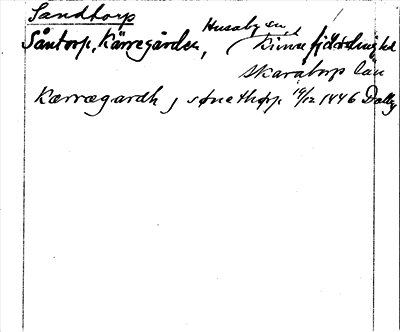 Sandtorp
Såntorp, Kärregården, Husaby sn Kinne fjärdings hd
Skaraborgs län
Kærrægardh j sønethorp 19/12 1446 Dalby